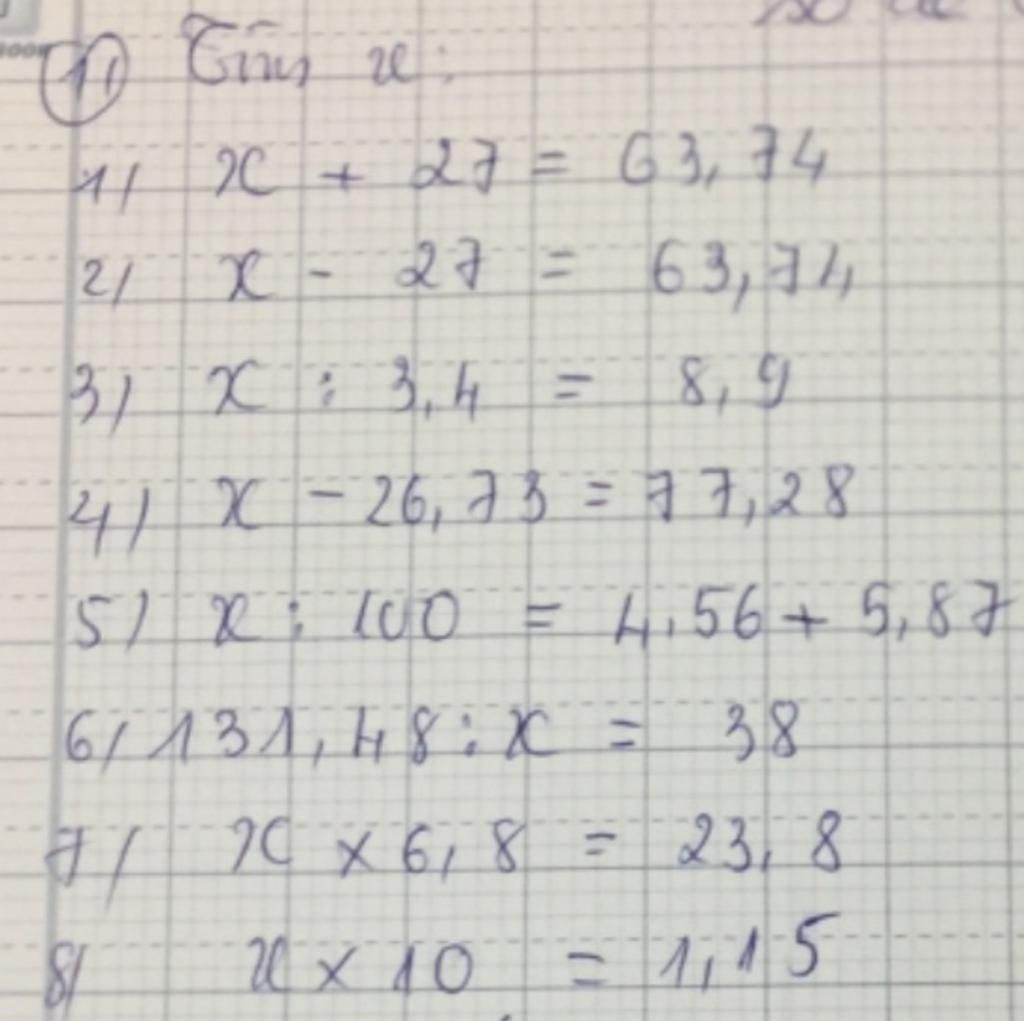 1) Tìm x:
1/ x + 27 = 63,74
2/ x - 27 = 63,74
3/ x : 3,4 = 8,9
4/ x - 26,73 = 77,28
5/ x : 100 = 4,56 + 5,87
6/ 131,48 : x = 38
7/ x × 6,8 = 23,8
8/ x × 10 = 1,15